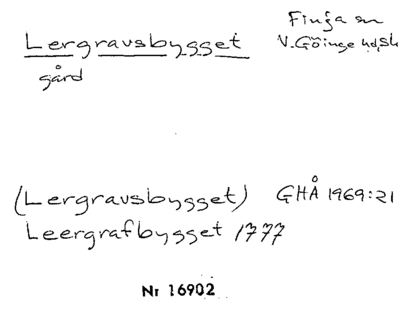 Lergravsbygget
gård
Finja sn
V.Göinge hd, Sk
(Lergravsbygget) GHÅ 1969:21
Leergrafbygget 1777
Nr 16902